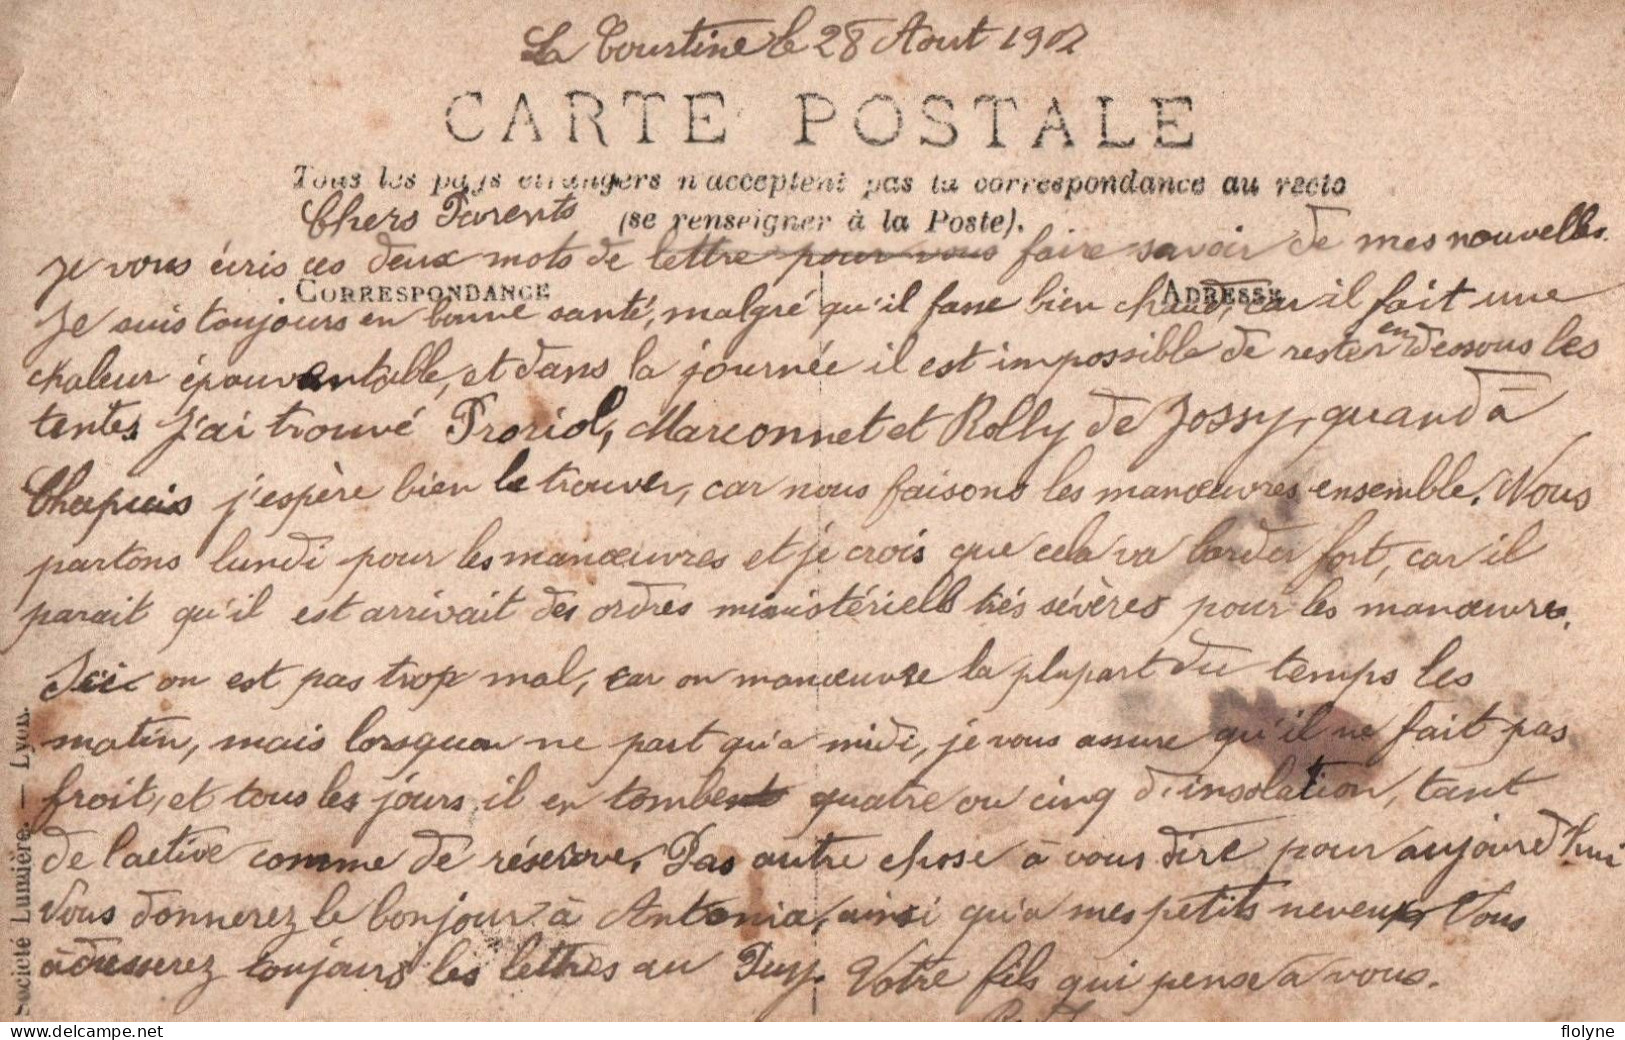 La Courtine le 28 Aout 1912
CARTE POSTALE
Tous les pays étrangers n'acceptent pas la correspondance au recto
(se renseigner à la Poste).
Chers Parents
Je vous écris ces deux mots de lettre pour vous faire savoir de mes nouvelles.
CORRESPONDANCE
ADRESSE
Je suis toujours en bonne santé, malgré qu'il fasse bien chaud, car il fait une
chaleur épouvantable, et dans la journée il est impossible de rester en dessous les
tentes J'ai trouvé Proriol, Marconnet et Rolly de Jossy, quand à
Chapuis j'espère bien le trouver, car nous faisons les manœuvres ensemble. Nous
partons lundi pour les manœuvres et je crois que cela va barder fort, car il
parait qu'il est arrivait des ordres ministériells trés sévères pour les manœuvres.
Ici on est pas trop mal, car on manœuvre la plupart du temps les
matin, mais lorsquon ne part qu'a midi, je vous assure qu'il ne fait pas
froit, et tous les jours, il en tombent quatre ou cinq d'insolation, tant
de l'active comme de réserve. Pas autre chose à vous dire pour aujourd'hui
Vous donnerez le bonjour à Antonia, ainsi qu'a mes petits neveux, Vous
adresserez toujours les lettres au Puy. Votre fils qui pense à vous.
Société Lumière. — Lyon.
flolyne